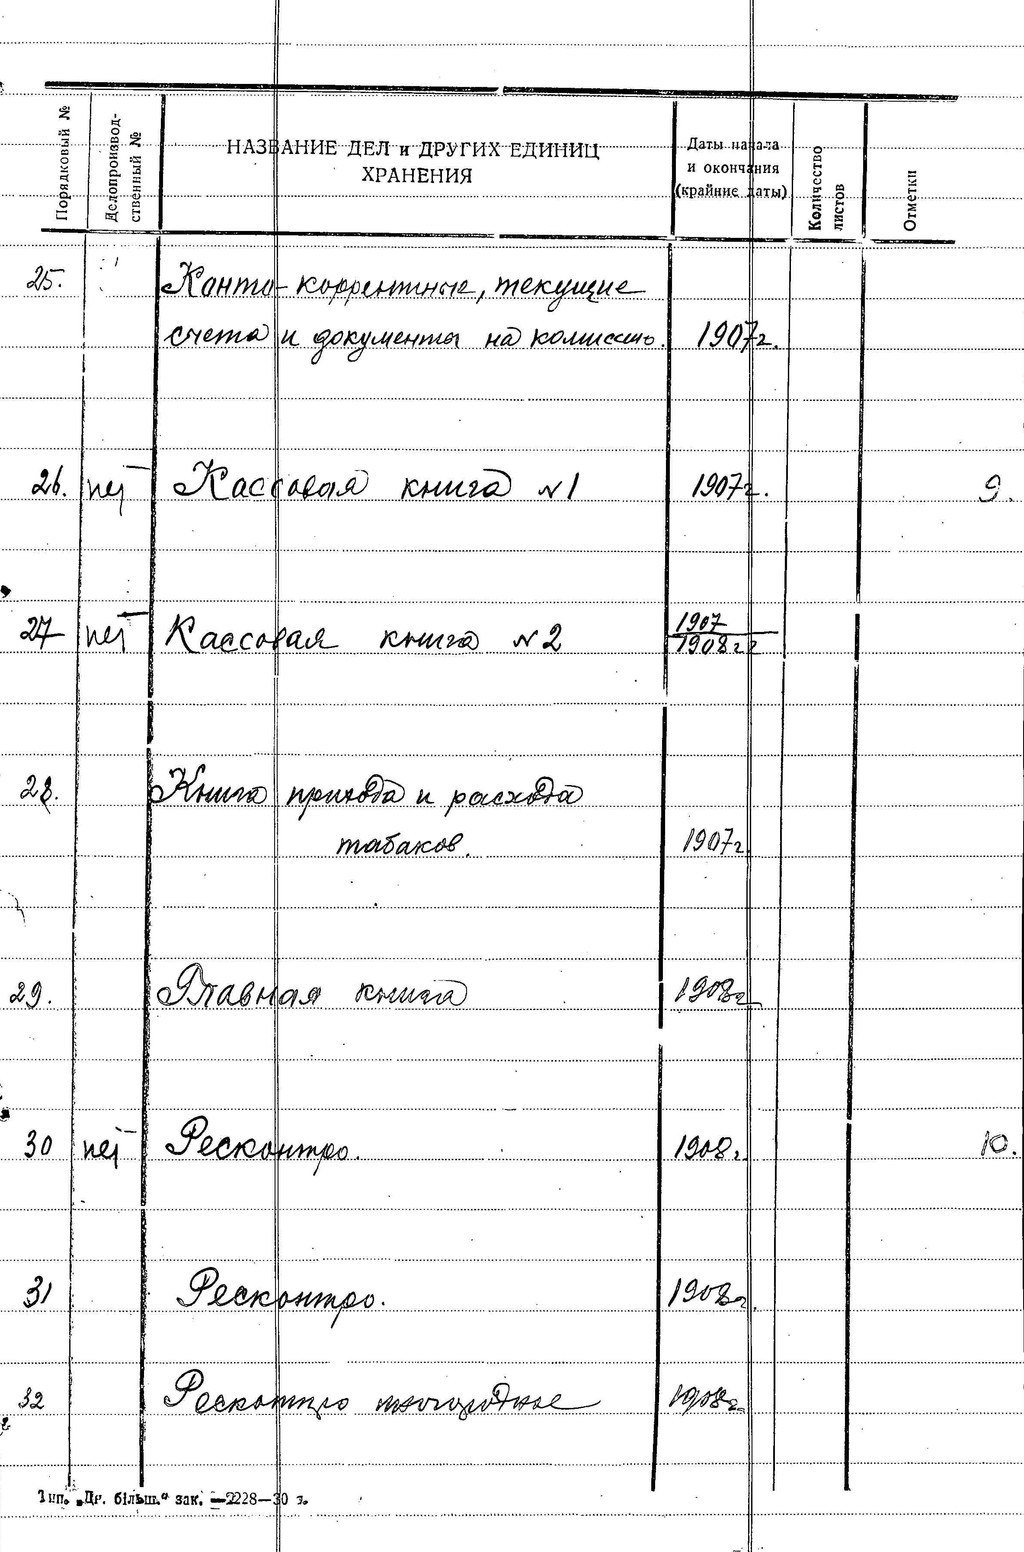 Порядковый №
Делопроизвод-
ственный №
НАЗВАНИЕ ДЕЛ и ДРУГИХ ЕДИНИЦ
ХРАНЕНИЯ
Даты начала
и окончания
(крайние даты)
Количество
листов
Отметки
25. Конто-коррентные, текущие
счета и документы на комиссию. 1907г.
26. нет Кассовая книга №1 1907г. 9.
27 нет Кассовая книга №2 1907
1908гг
28. Книга прихода и расхода
табаков. 1907г
29. Главная книга 1908г
30 нет Ресконтро. 1908г. 10.
31 Ресконтро. 1908г.
32 Ресконтро иногороднее 1908г.
Тип. „Др. більш.“ зак. —2228—30 г.